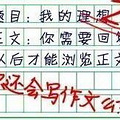 题目：我的理想
正文：你需要回
以后才能浏览正
你还会写作文么